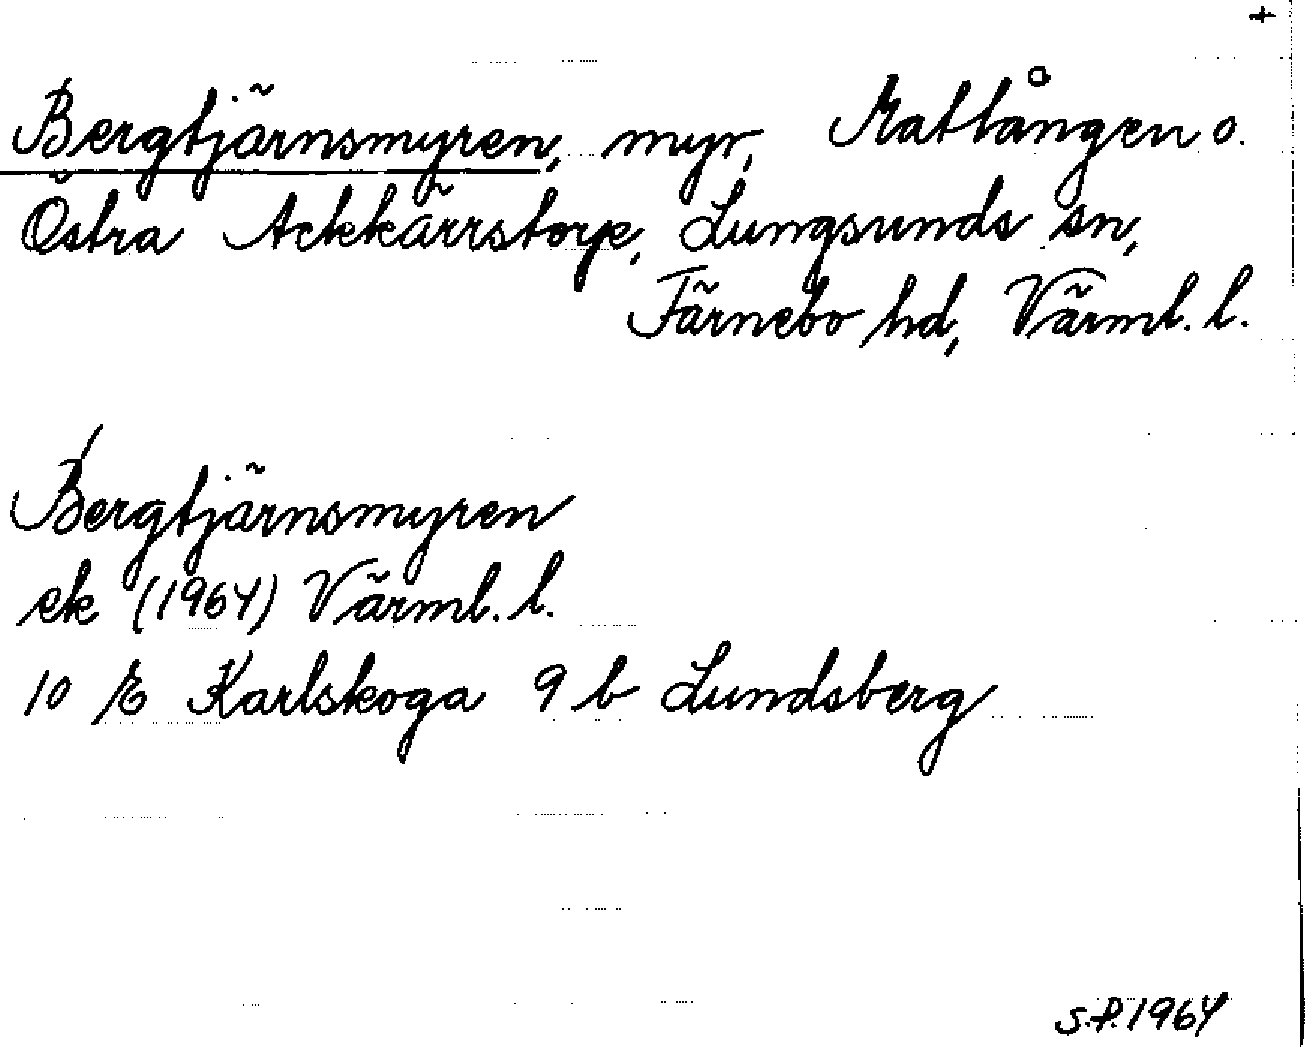 +
Bergtjärnsmyren, myr, Matlången o.
Östra Ackkärrstorp, Lungsunds sn,
Färnebo hd, Värml. l.
Bergtjärnsmyren
ek (1964) Värml. l.
10 E Karlskoga 9 b Lundsberg
S.P. 1964